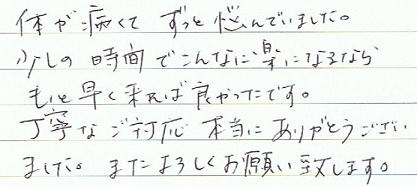 体が痛くて ずっと悩んでいました。
少しの時間でこんなに楽になるなら
もっと早く来れば良かったです。
丁寧なご対応 本当にありがとうござい
ました。またよろしくお願い致します。